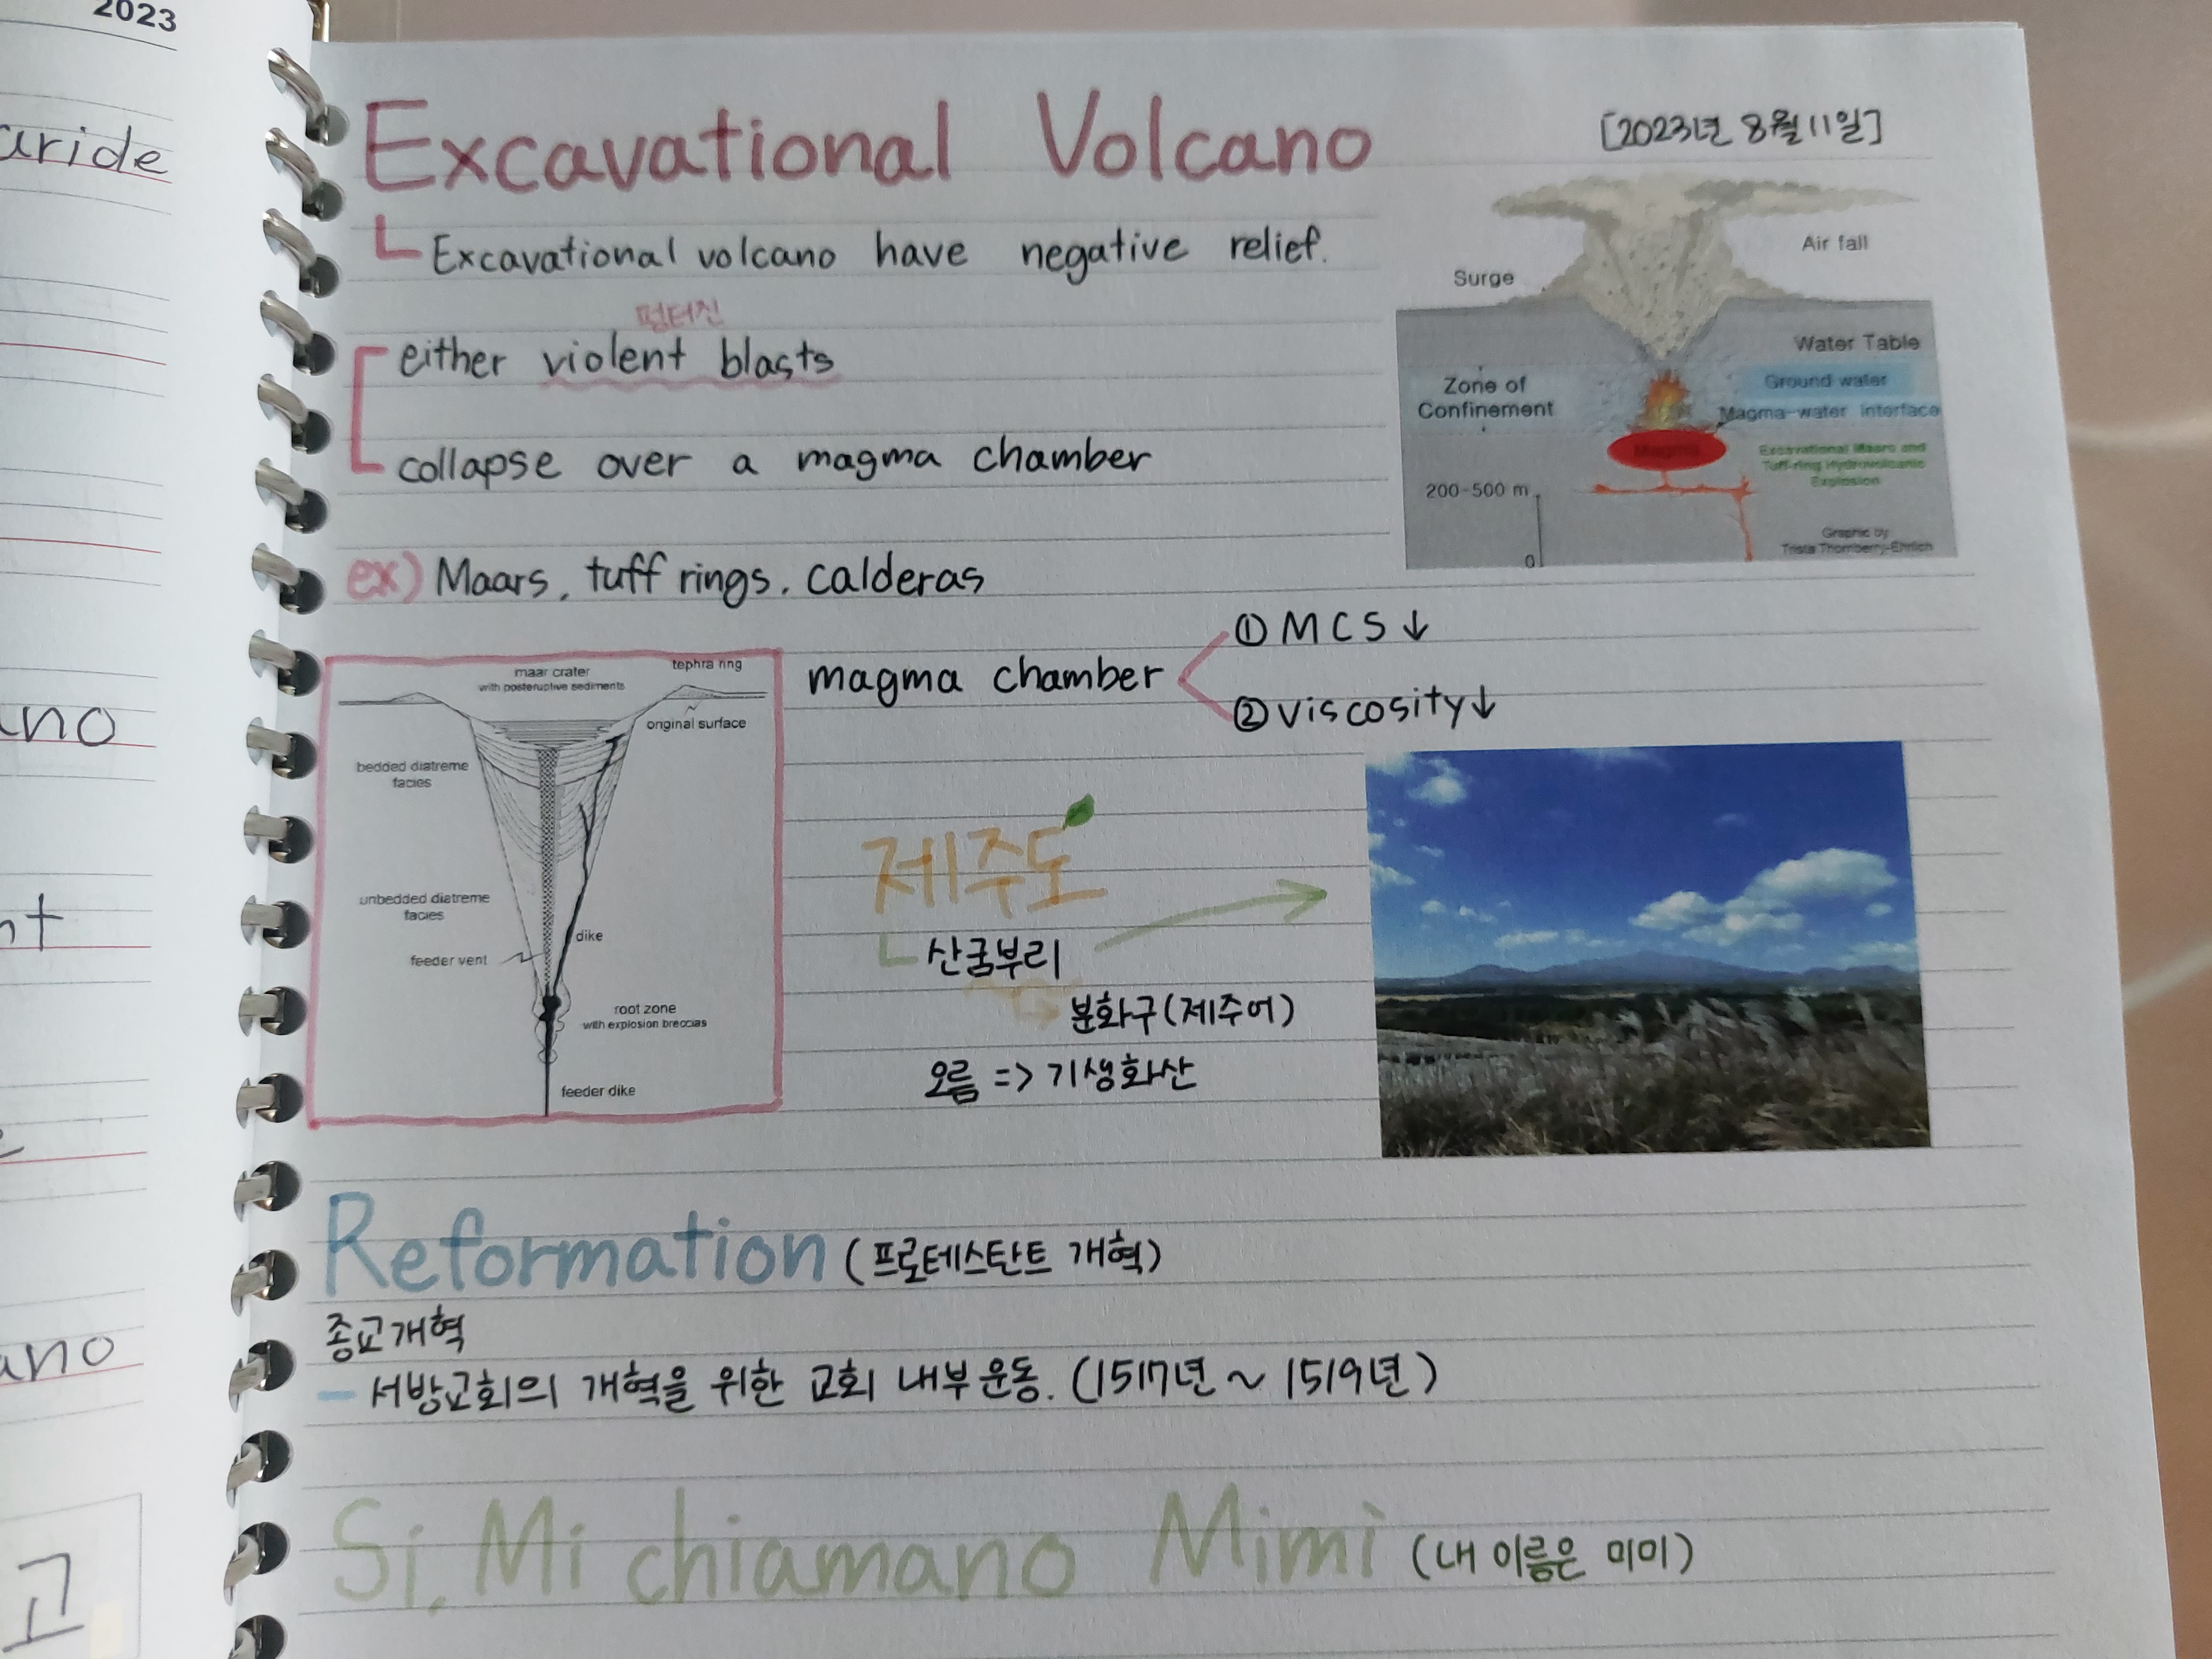 2023
aride
ano
nt
ano
고
Excavational Volcano
[2023년 8월 11일]
Excavational volcano have negative relief.
펑터진
either violent blasts
collapse over a magma chamber
ex) Maars, tuff rings, calderas
Surge
Air fall
Water Table
Ground water
Zone of
Confinement
Magma-water interface
Magma
Excavational Maars and
Tuff-ring Hydrovolcanic
Explosion
200-500 m
0
Graphic by
Trista Thornberry-Ehrlich
maar crater
with posteruptive sediments
tephra ring
original surface
bedded diatreme
facies
unbedded diatreme
facies
dike
feeder vent
root zone
with explosion breccias
feeder dike
magma chamber
① MCS↓
② viscosity↓
제주도
산굼부리
분화구(제주어)
오름 => 기생화산
Reformation (프로테스탄트 개혁)
종교개혁
- 서방교회의 개혁을 위한 교회 내부운동. (1517년 ~ 1519년)
Si, Mi chiamano Mimi (내 이름은 미미)